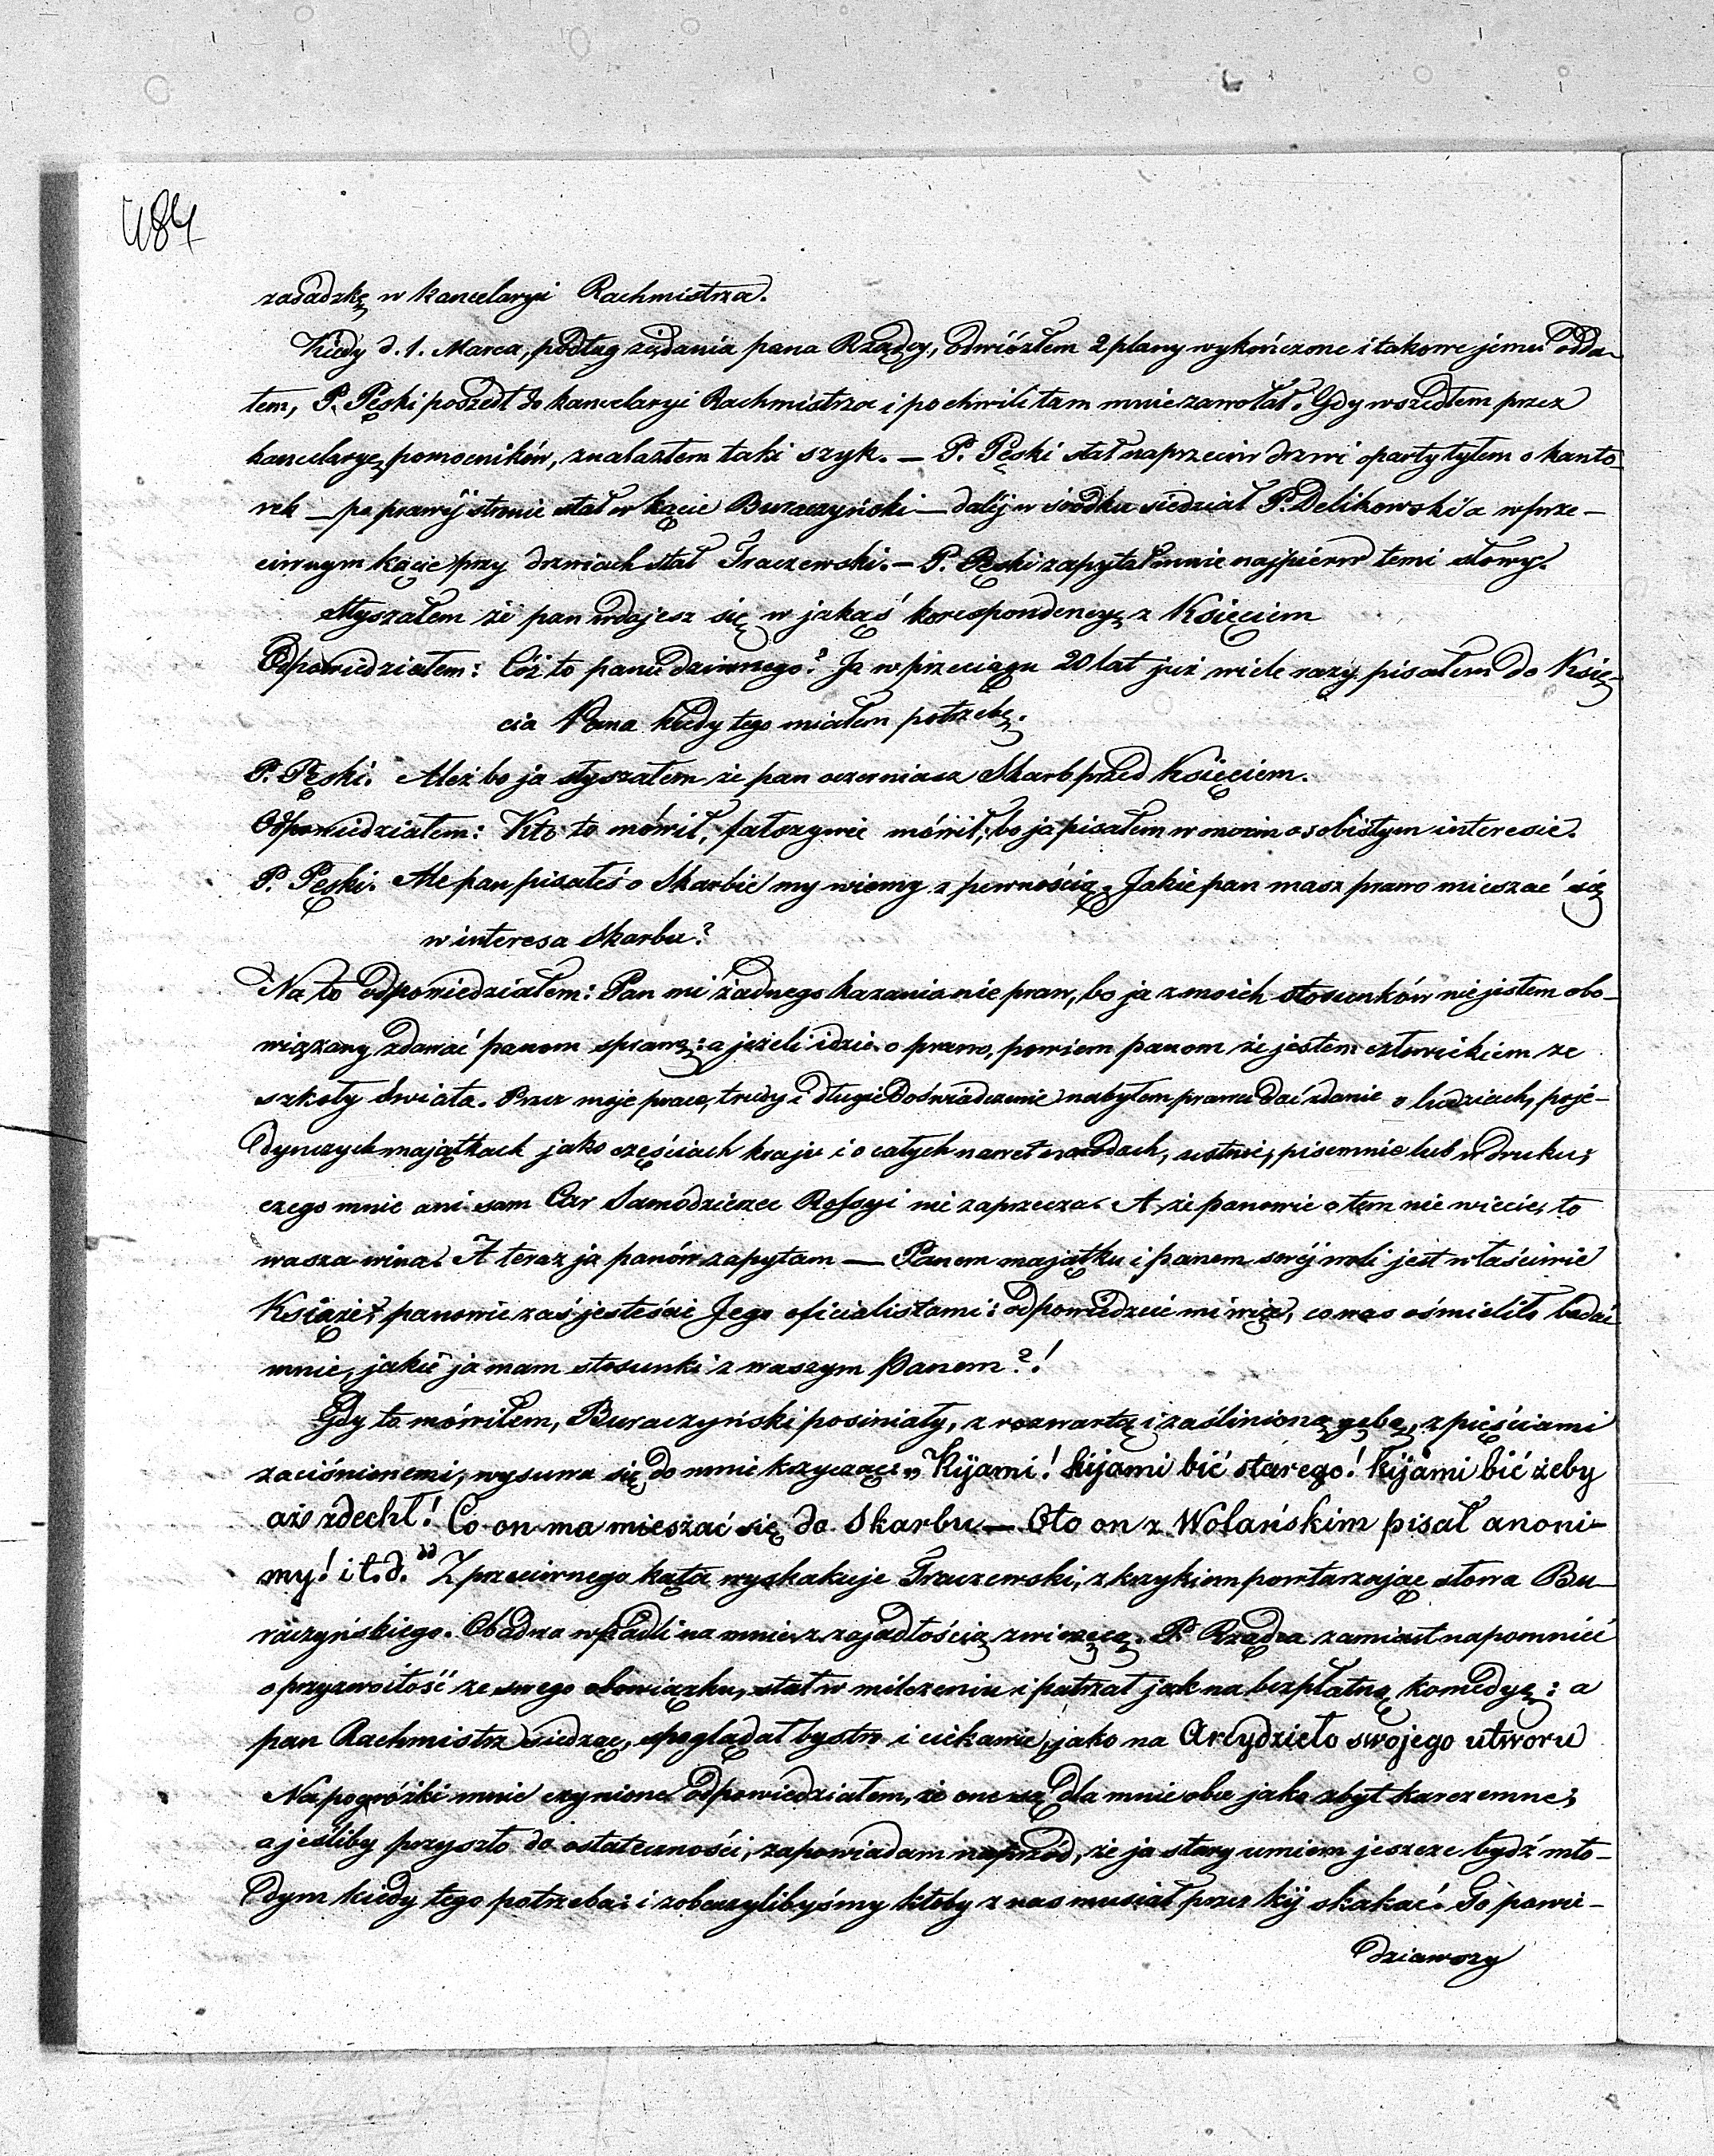 484
zasadzkę w kancelaryi Rachmistrza.
Kiedy d. 1. Marca, podług żądania pana Rządcy, odwiózłem 2 plany wykończone i takowe jemu odda-
łem, P. Pęski poszedł do kancelaryi Rachmistrza i po chwili tam mnie zawołał. Gdy wszedłem przez
kancelaryę pomocników, znalazłem taki szyk. — P. Pęski stał naprzeciw drzwi oparty tyłem o kanto-
rek — po prawéj stronie stał w kącie Buraczyński — daléj w środku siedział P. Delikowski a w prze-
ciwnym kącie przy drzwiach stał Traczewski. — P. Pęski zapytał mnie najpierw temi słowy.
Słyszałem że pan wdajesz się w jakąś korespondencyę z Księciem
Odpowiedziałem: Cóż to panu dziwnego? Ja w przeciągu 20 lat już wiele razy pisałem do Księ-
cia Pana kiedy tego miałem potrzebę.
P. Pęski. Ależ bo ja słyszałem że pan oczerniasz Skarb przed Księciem.
Odpowiedziałem: Kto to mówił, fałszywie mówił, bo ja pisałem w moim osobistym interesie.
P. Pęski. Ale pan pisałeś o Skarbie my wiemy z pewnością. Jakie pan masz prawo mieszać się
w interesa Skarbu?
Na to odpowiedziałem: Pan mi żadnego kazania nie praw, bo ja z moich stosunków nie jestem obo-
wiązany zdawać panom sprawę: a jeżeli idzie o prawo, powiem panom że jestem człowiekiem ze
szkoły świata. Przez moje prace, trudy i długie Doświadczenie nabyłem prawa dać zdanie o ludziach, poje-
dynczych majątkach jako częściach kraju i o całych nawet narodach, ustnie, pisemnie lub w druku;
czego mnie ani sam Car Samodzierzec Rossyi nie zaprzecza. A że panowie o tem nie wiecie, to
wasza wina. A teraz ja panów zapytam — Panem majątku i panem swéj woli jest właściwie
Książe; panowie zaś jesteście Jego oficialistami: odpowiedzcie mi więc, co was ośmieliło badać
mnie, jakie ja mam stosunki z waszym Panem?!
Gdy to mówiłem, Buraczyński posiniały, z rozwartą i zaślinioną gębą, z pięściami
zaciśnionemi, wysuwa się do mnie krzycząc „Kijami! kijami bić starego! kijami bić żeby
aż zdechł! Co on ma mieszać się do Skarbu — Oto on z Wolańskim pisał anoni-
my! i t. d.“ Z przeciwnego kąta wyskakuje Traczewski, z krzykiem powtarzając słowa Bu-
raczyńskiego. Obadwa wpadli na mnie z zajadłością zwierzęcą. P. Rządca zamiast napomnieć
o przyzwoitość ze swego obowiązku, stał w milczeniu i patrzał jak na bezpłatną komedyę: a
pan Rachmistrz siedząc, spoglądał bystro i ciekawie, jako na Arcydzieło swojego utworu
Na pogróżki mnie czynione odpowiedziałem, że one są dla mnie obce jako zbyt karczemne;
a jeśliby przyszło do ostateczności, zapowiadam naprzód, że ja stary umiem jeszcze bydź mło-
dym kiedy tego potrzeba: i zobaczylibyśmy ktoby z nas musiał przez kij skakać. To powie-
dziawszy